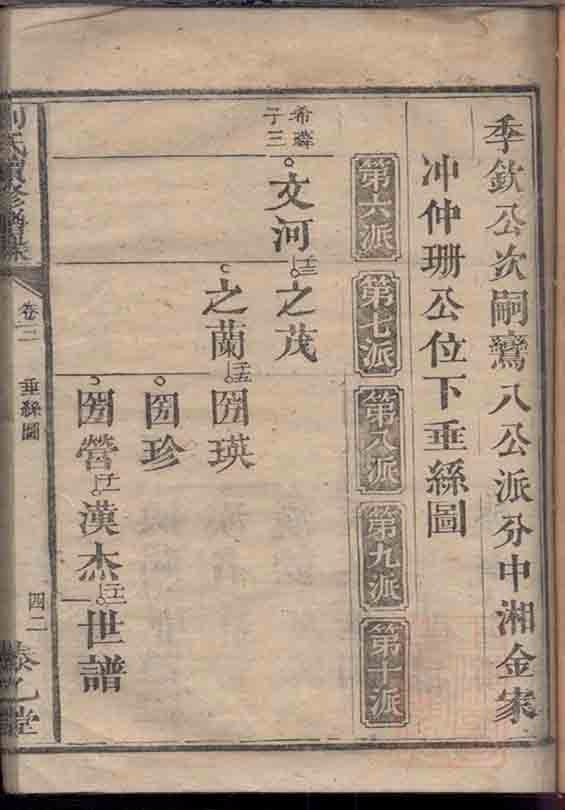 季欽公次嗣鸞八公派分中湘金家
冲仲珊公位下垂絲圖
第六派
第七派
第八派
第九派
第十派
希
子三
文河
之茂
之蘭
瑛
珍
營
漢杰
世譜
氏續修譜
卷三
垂絲圖
四二
堂